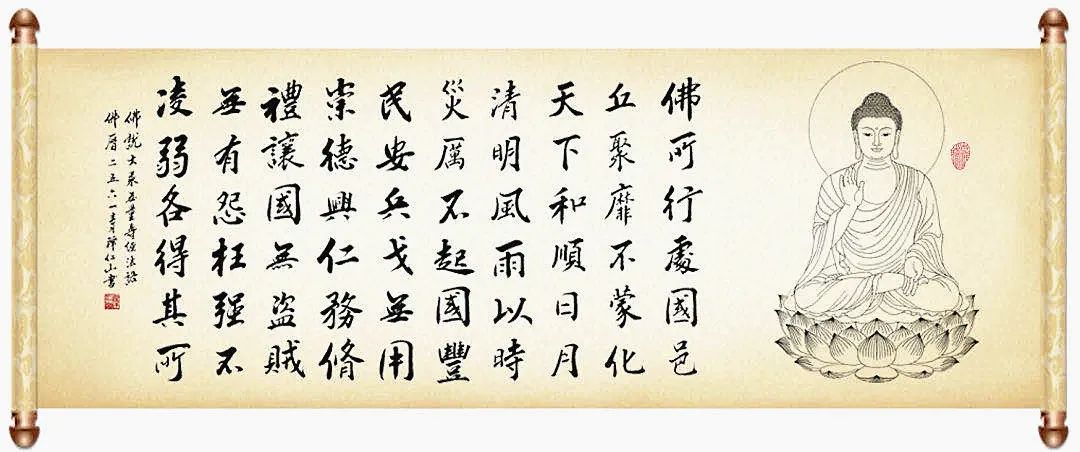 佛所行處國邑
丘聚靡不蒙化
天下和順日月
清明風雨以時
災厲不起國豐
民安兵戈無用
崇德興仁務脩
禮讓國無盜賊
無有怨枉强不
凌弱各得其所
佛說大乘無量壽經法語
佛曆二五六一月仁山書